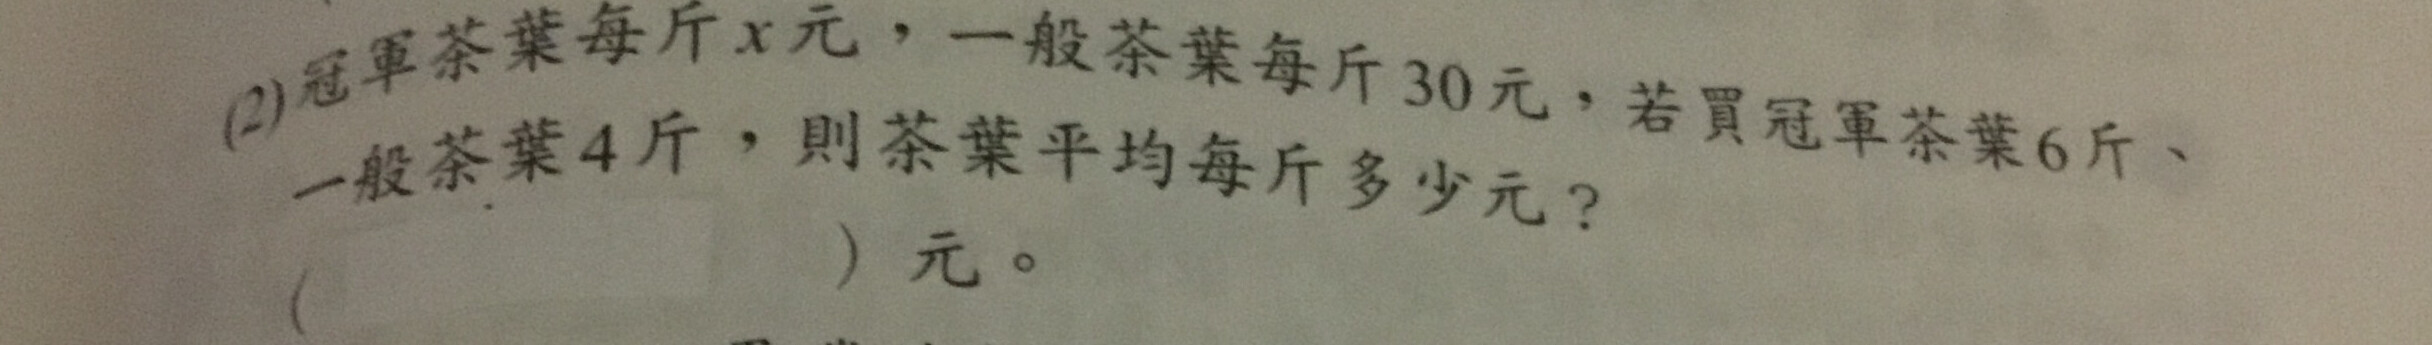 (2)冠軍茶葉每斤x元，一般茶葉每斤30元，若買冠軍茶葉6斤、
一般茶葉4斤，則茶葉平均每斤多少元？
（ ）元。